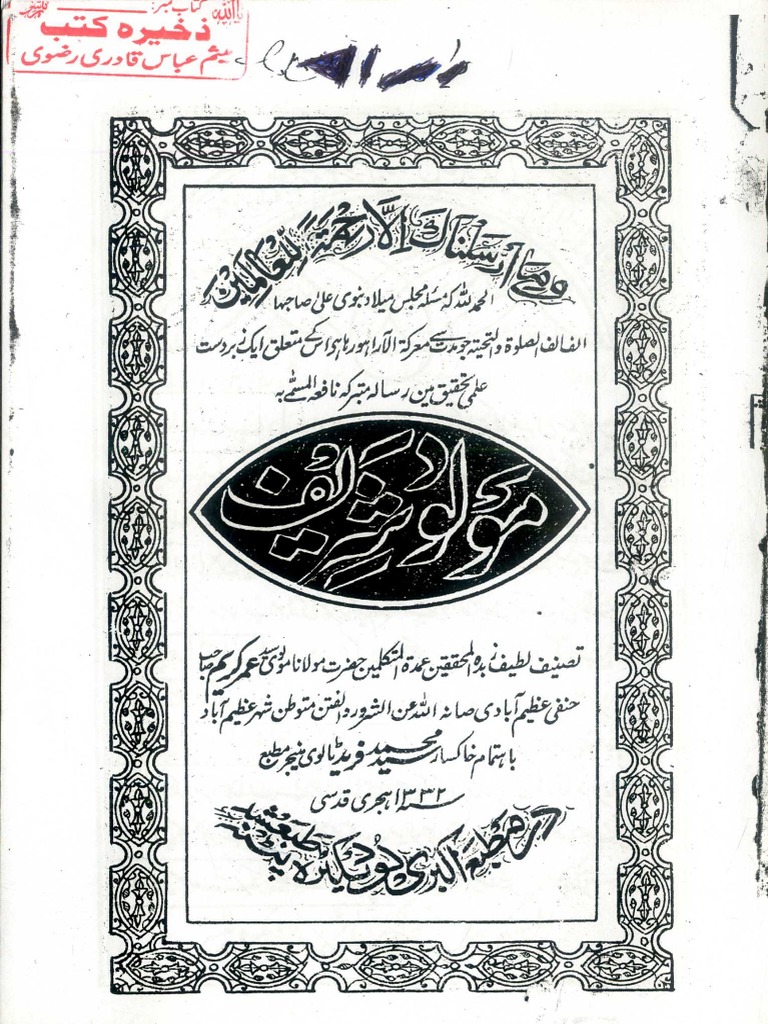 یا اللہ
کتاب نمبر:
ذخیرہ کتب
میثم عباس قادری رضوی
وما ارسلناک الا رحمۃ للعالمین
الحمد للہ کہ مسئلہ مجلس میلاد نبوی علیٰ صاحبہا
الف الف الصلوۃ والتحیتہ جو مدت سے معرکۃ الآرا ہو رہا ہی اس کے متعلق ایک زبردست
علمی تحقیق مین رسالہ متبرکہ نافعہ المسمّٰے بہ
مولود شریف
تصنیف لطیف زبدہ المحققین عمدۃ المتکلمین حضرت مولانا مولوی سید عمر کریم صاحب
حنفی عظیم آبادی صانہ اللہ عن الشرور والفتن متوطن شہر عظیم آباد
باہتمام خاکسار سید محمد فرید منیجر مطبع
سنہ ۱۳۳۲ ہجری قدسی
در مطبع اکبری پٹنہ طبع شد